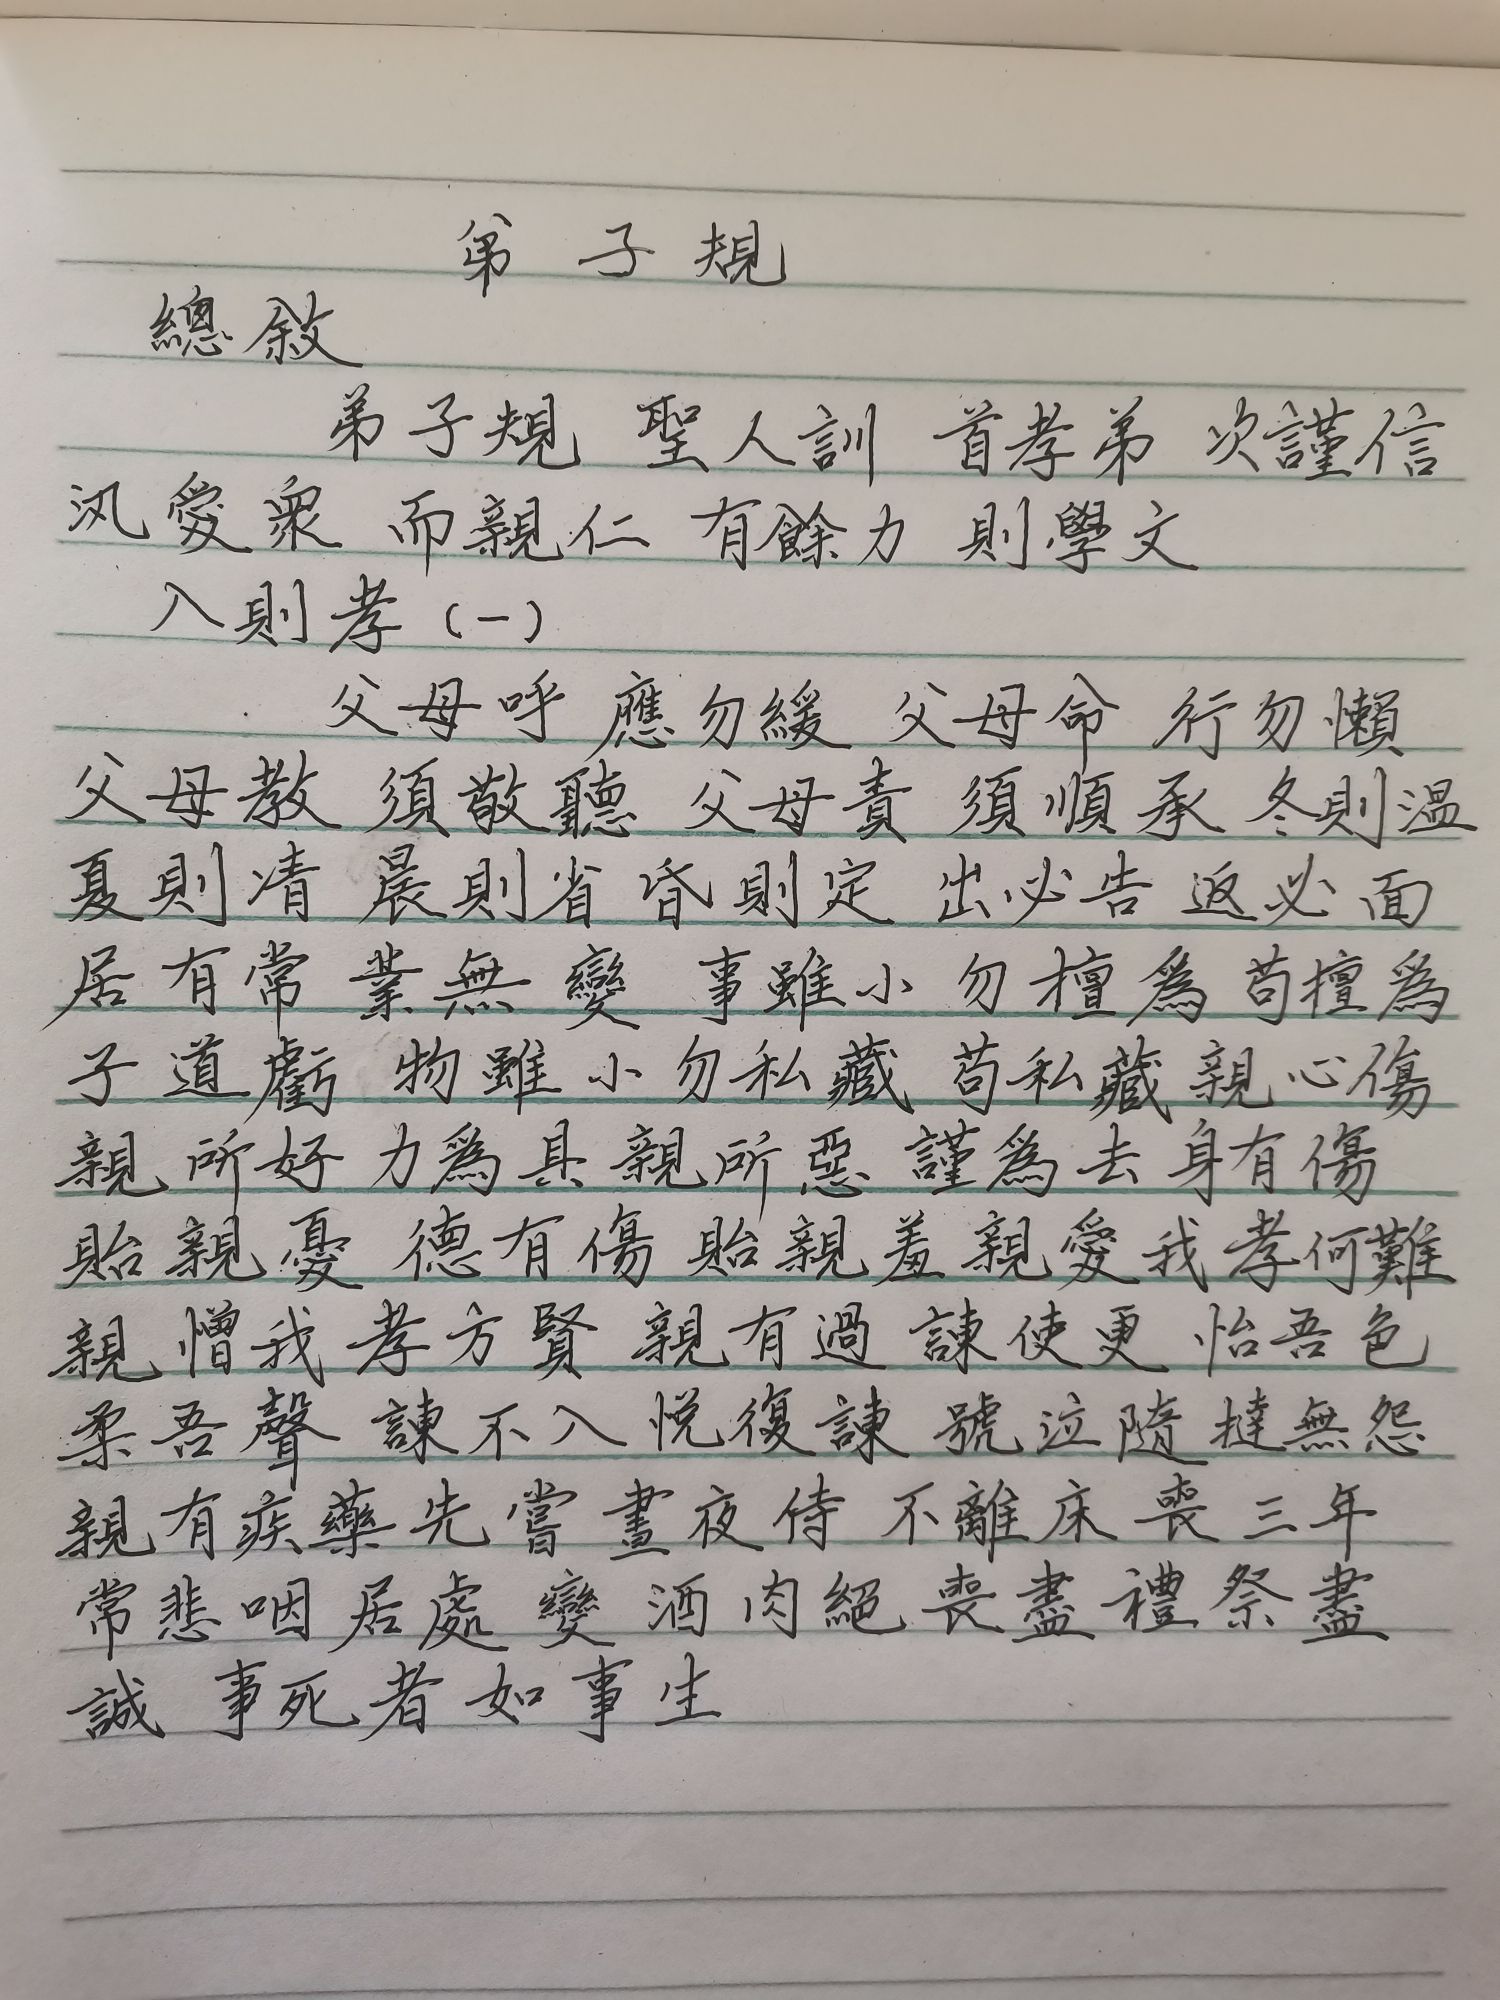 弟子規
總敘
弟子規 聖人訓 首孝弟 次謹信
汎愛衆 而親仁 有餘力 則學文
入則孝(一)
父母呼 應勿緩 父母命 行勿懶
父母教 須敬聽 父母責 須順承 冬則溫
夏則凊 晨則省 昏則定 出必告 返必面
居有常 業無變 事雖小 勿擅為 苟擅為
子道虧 物雖小 勿私藏 苟私藏 親心傷
親所好 力為具 親所惡 謹為去 身有傷
貽親憂 德有傷 貽親羞 親愛我 孝何難
親憎我 孝方賢 親有過 諫使更 怡吾色
柔吾聲 諫不入 悅復諫 號泣隨 撻無怨
親有疾 藥先嘗 晝夜侍 不離床 喪三年
常悲咽 居處變 酒肉絕 喪盡禮 祭盡
誠 事死者 如事生